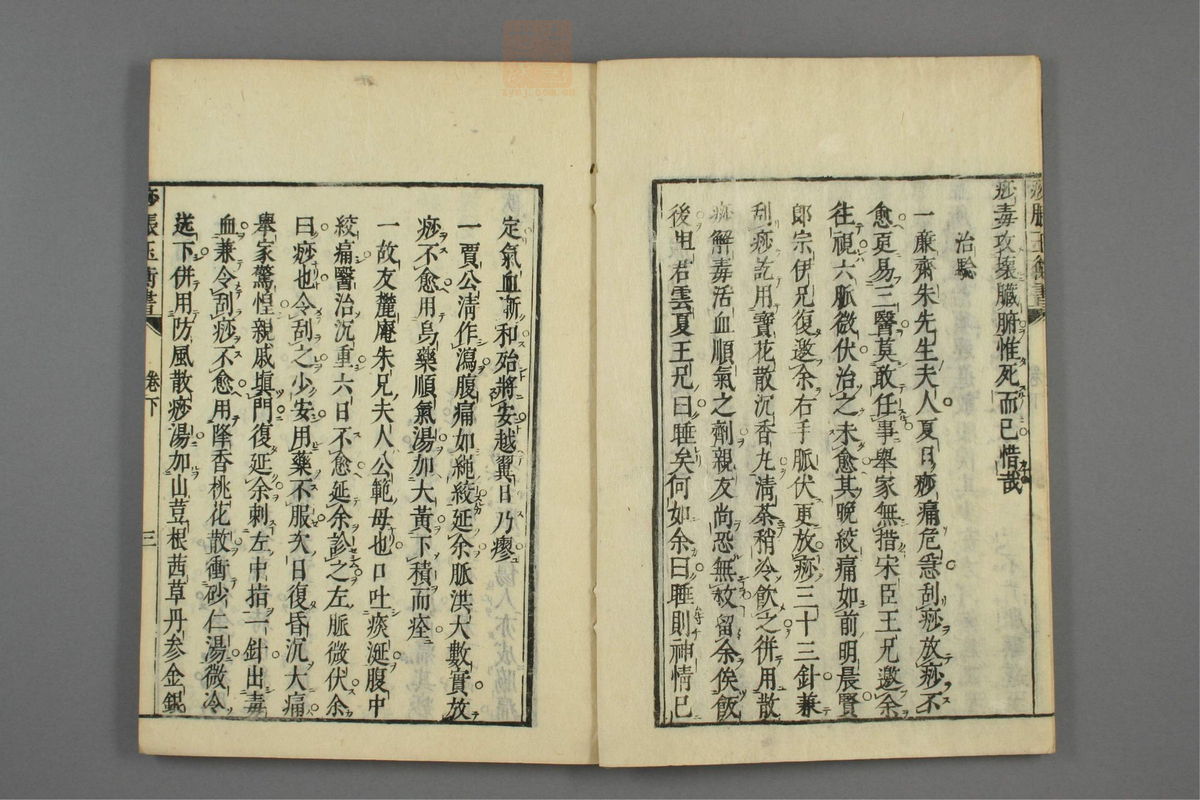 痧毒攻壞臟腑惟死而已惜哉
治驗
一廉齋朱先生夫人夏日痧痛危急刮痧放痧不
愈更易三醫莫敢任事舉家無措宋臣王兄邀余
往視六脈微伏治之未愈其晚絞痛如前明晨賢
郎宗伊兄復邀余右手脈伏更放痧三十三針兼
刮痧訖用寶花散沉香丸清茶稍冷飲之併用散
痧解毒活血順氣之劑親友尚恐無救留余俟飯
後坦君雲夏王兄曰睡矣何如余曰睡則神情已
定氣血漸和殆將安越翼日乃瘳
一賈公清作瀉腹痛如繩絞延余脈洪大數實放
痧不愈用烏藥順氣湯加大黃下積而痊
一故友麓庵朱兄夫人公範母也口吐痰涎腹中
絞痛醫治沉重六日不愈延余診之左脈微伏余
曰痧也令刮之少安用藥不服次日復昏沉大痛
舉家驚惶親戚塡門復延余刺左中指一針出毒
血兼令刮痧不愈用降香桃花散衝砂仁湯微冷
送下併用防風散痧湯加山豆根茜草丹參金銀
痧脹玉衡書
卷下
三